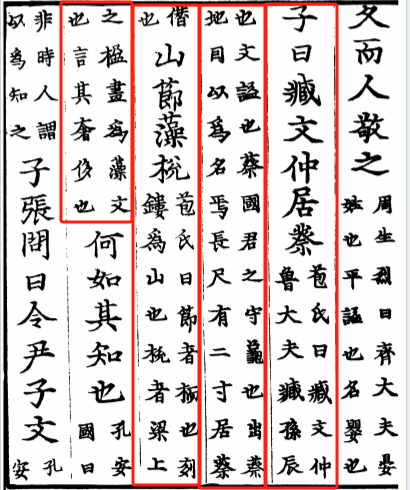 久而人敬之
周生烈曰齊大夫晏
姓也平謚也名嬰也
子曰臧文仲居蔡
苞氏曰臧文仲
魯大夫臧孫辰
也文謚也蔡國君之守龜也出蔡
地因以爲名焉長尺有二寸居蔡
僭
也
山節藻梲
苞氏曰節者栭也刻
鏤爲山也梲者梁上
之楹畫爲藻文
也言其奢侈也
何如其知也
孔安
國曰
非時人謂
以爲知之
子張問曰令尹子文
孔
安